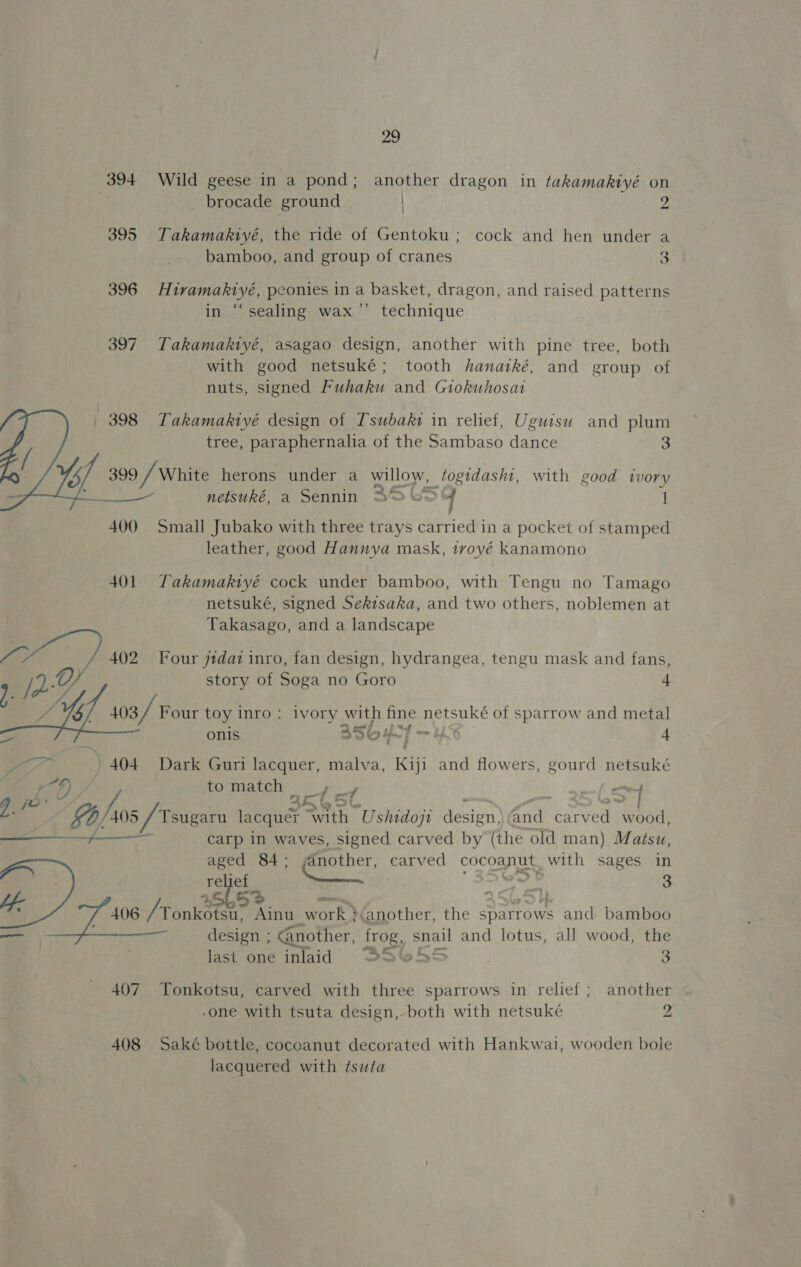 29
394 Wild geese in a pond; another dragon in takamakiyé on
brocade ground 2
395 Takamakiyé, the ride of Gentoku; cock and hen under a
bamboo, and group of cranes 3
396 Hiramakiyé, peonies in a basket, dragon, and raised patterns
in “sealing wax” technique
397 Takamakiyé, asagao design, another with pine tree, both
with good netsuké; tooth hanaiké, and group of
nuts, signed Fuhaku and Giokuhosai
398 Takamakiyé design of Tsubaki in relief, Uguisu and plum
tree, paraphernalia of the Sambaso dance 3
399 / White herons under a willow, togidashi, with good ivory
netsuké, a Sennin 35659 1
400 Small Jubako with three trays carried in a pocket of stamped
leather, good Hannya mask, iroyé kanamono
401 Takamakiyé cock under bamboo, with Tengu no Tamago
netsuké, signed Sekisaka, and two others, noblemen at
Takasago, and a landscape
402 Four jidai inro, fan design, hydrangea, tengu mask and fans,
story of Soga no Goro 4
403 / Four toy inro: ivory with fine netsuké of sparrow and metal
onis 4
404 Dark Guri lacquer, malva, Kiji and flowers, gourd netsuké
to match
405 / Tsugaru lacquer with Ushidoji design, and carved wood,
carp in waves, signed carved by (the old man) Matsu,
aged 84; another, carved cocoanut with sages in
relief 3
406 / Tonkotsu, Ainu work; another, the sparrows and bamboo
design; another, frog, snail and lotus, all wood, the
last one inlaid 35655 3
407 Tonkotsu, carved with three sparrows in relief; another
one with tsuta design, both with netsuké 2
408 Saké bottle, cocoanut decorated with Hankwai, wooden bole
lacquered with tsuta